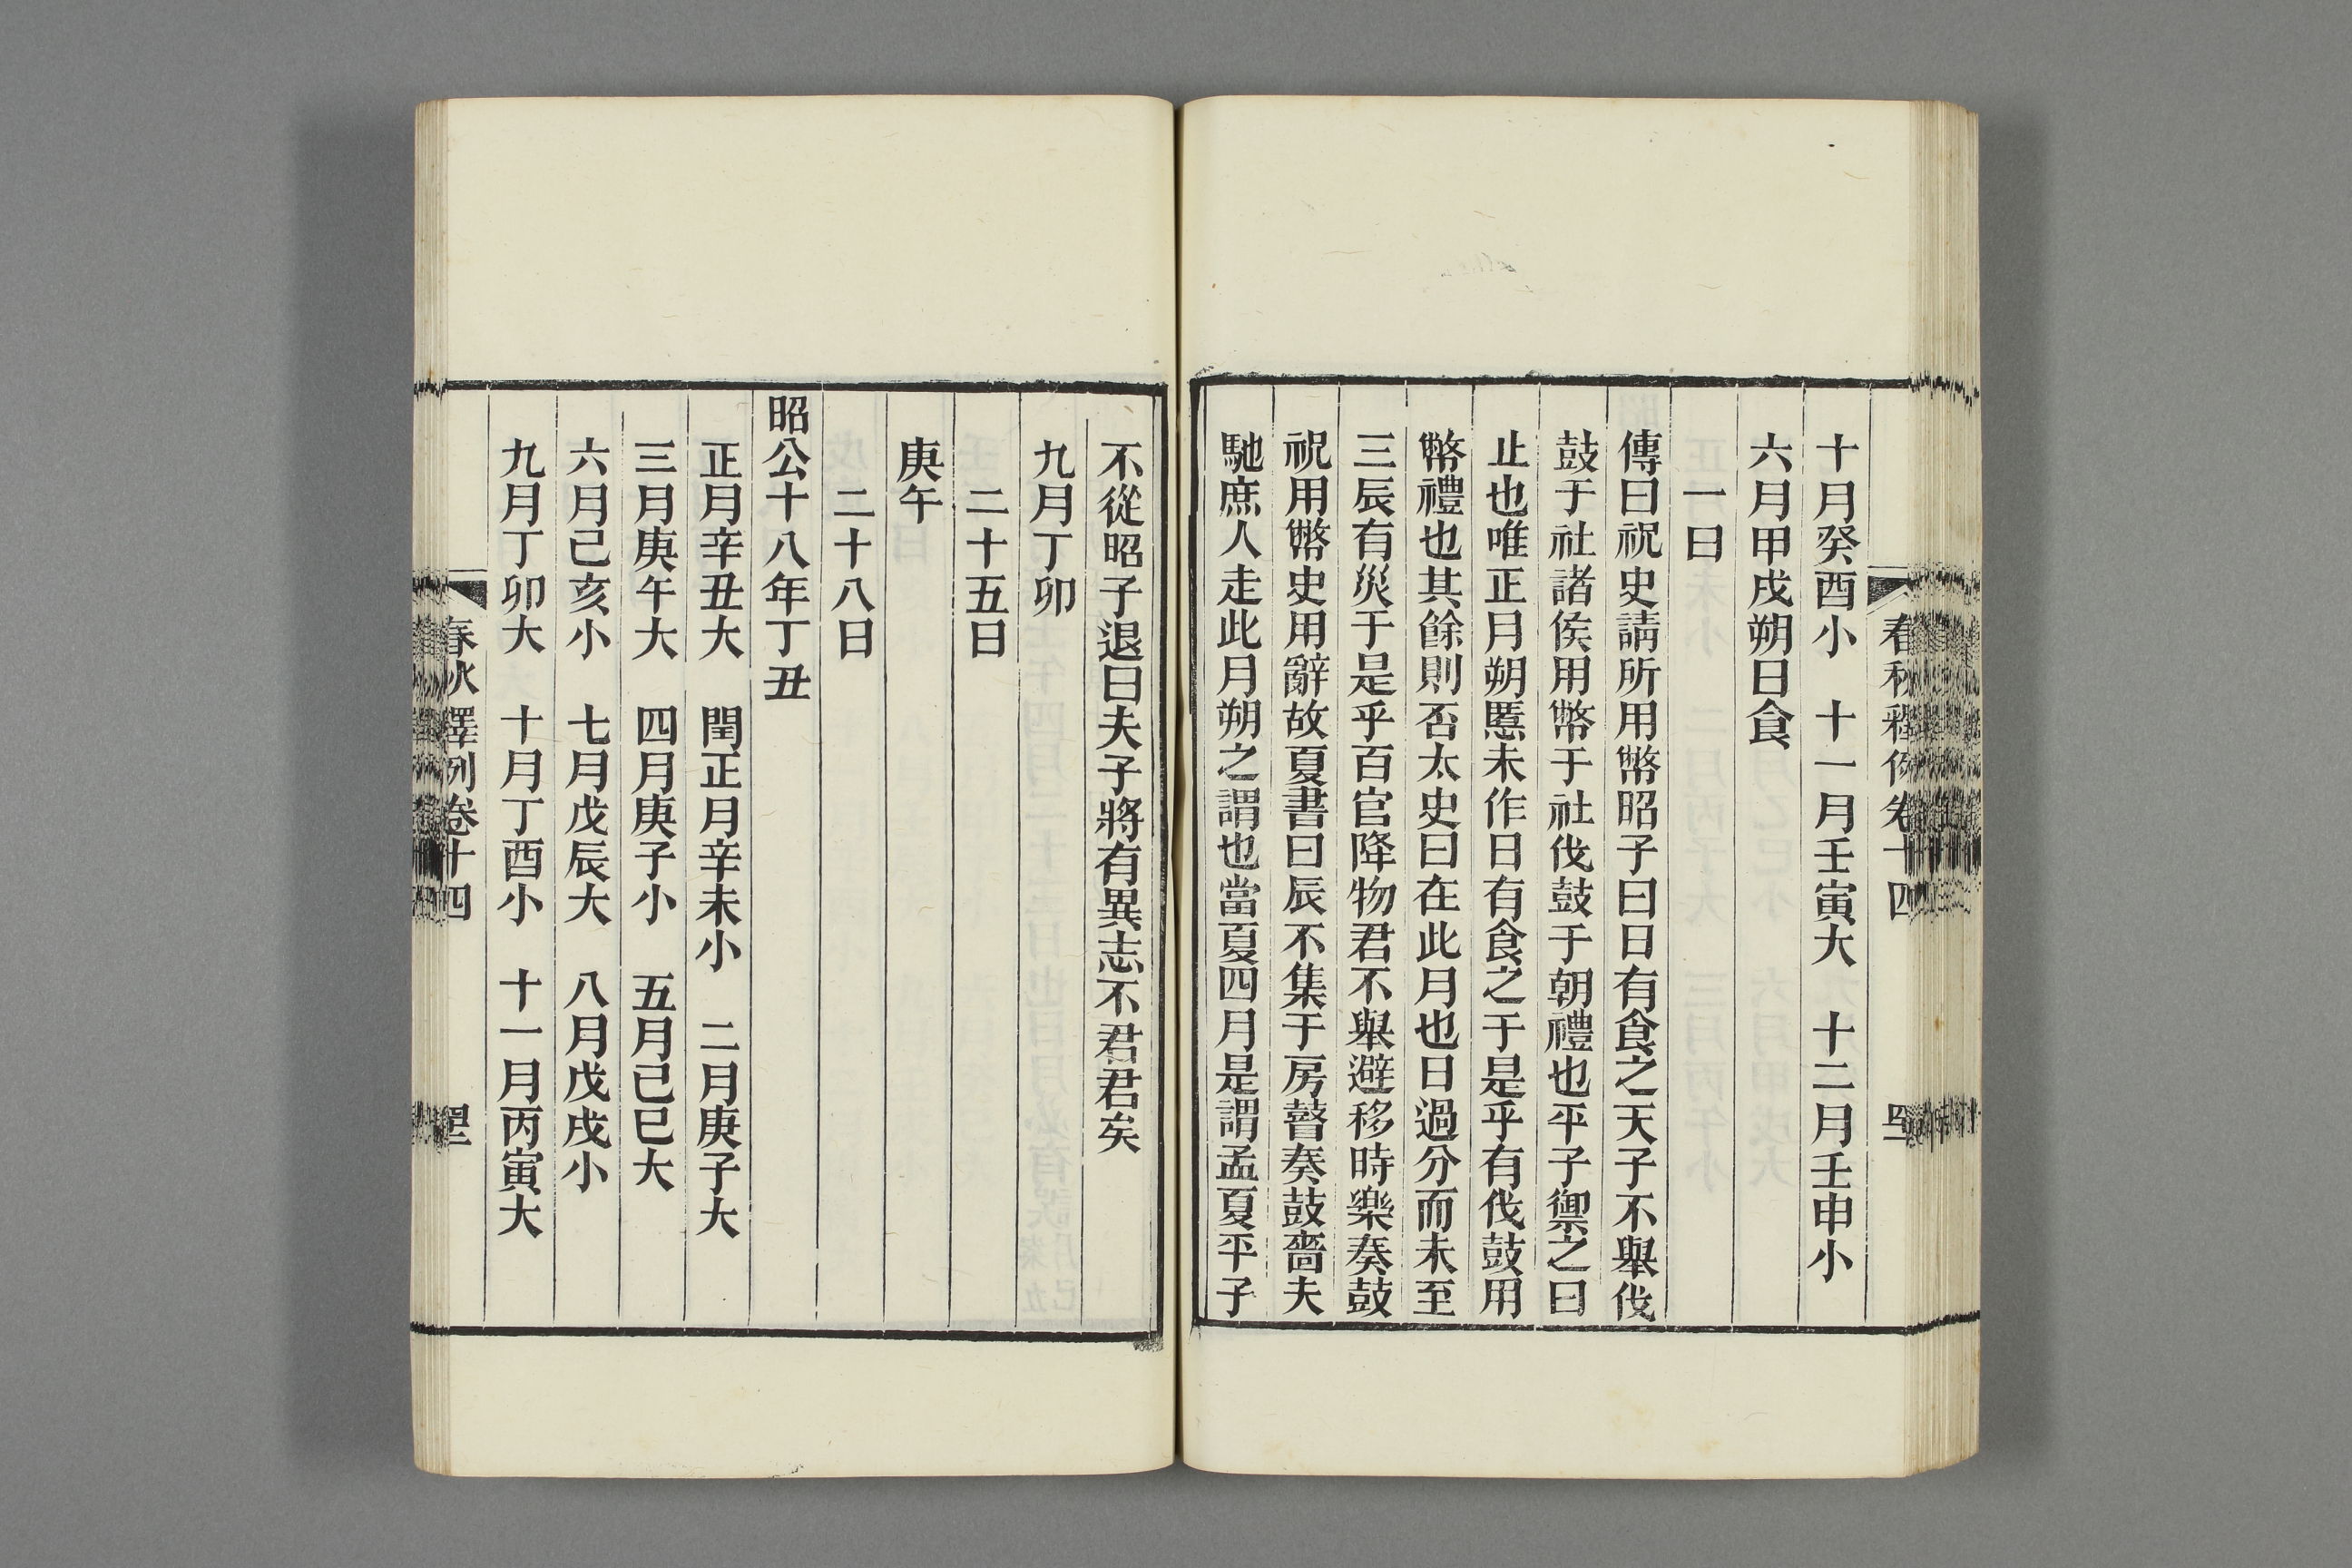 春秋釋例卷十四
十月癸酉小　十一月壬寅大　十二月壬申小
六月甲戌朔日食
一日
傳曰祝史請所用幣昭子曰日有食之天子不舉伐
鼓于社諸侯用幣于社伐鼓于朝禮也平子禦之曰
止也唯正月朔慝未作日有食之于是乎有伐鼓用
幣禮也其餘則否太史曰在此月也日過分而未至
三辰有災于是乎百官降物君不舉避移時樂奏鼓
祝用幣史用辭故夏書曰辰不集于房瞽奏鼓嗇夫
馳庶人走此月朔之謂也當夏四月是謂孟夏平子
不從昭子退曰夫子將有異志不君君矣
九月丁卯
二十五日
庚午
二十八日
昭公十八年丁丑
正月辛丑大　閏正月辛未小　二月庚子大
三月庚午大　四月庚子小　五月己巳大
六月己亥小　七月戊辰大　八月戊戌小
九月丁卯大　十月丁酉小　十一月丙寅大
春秋釋例卷十四